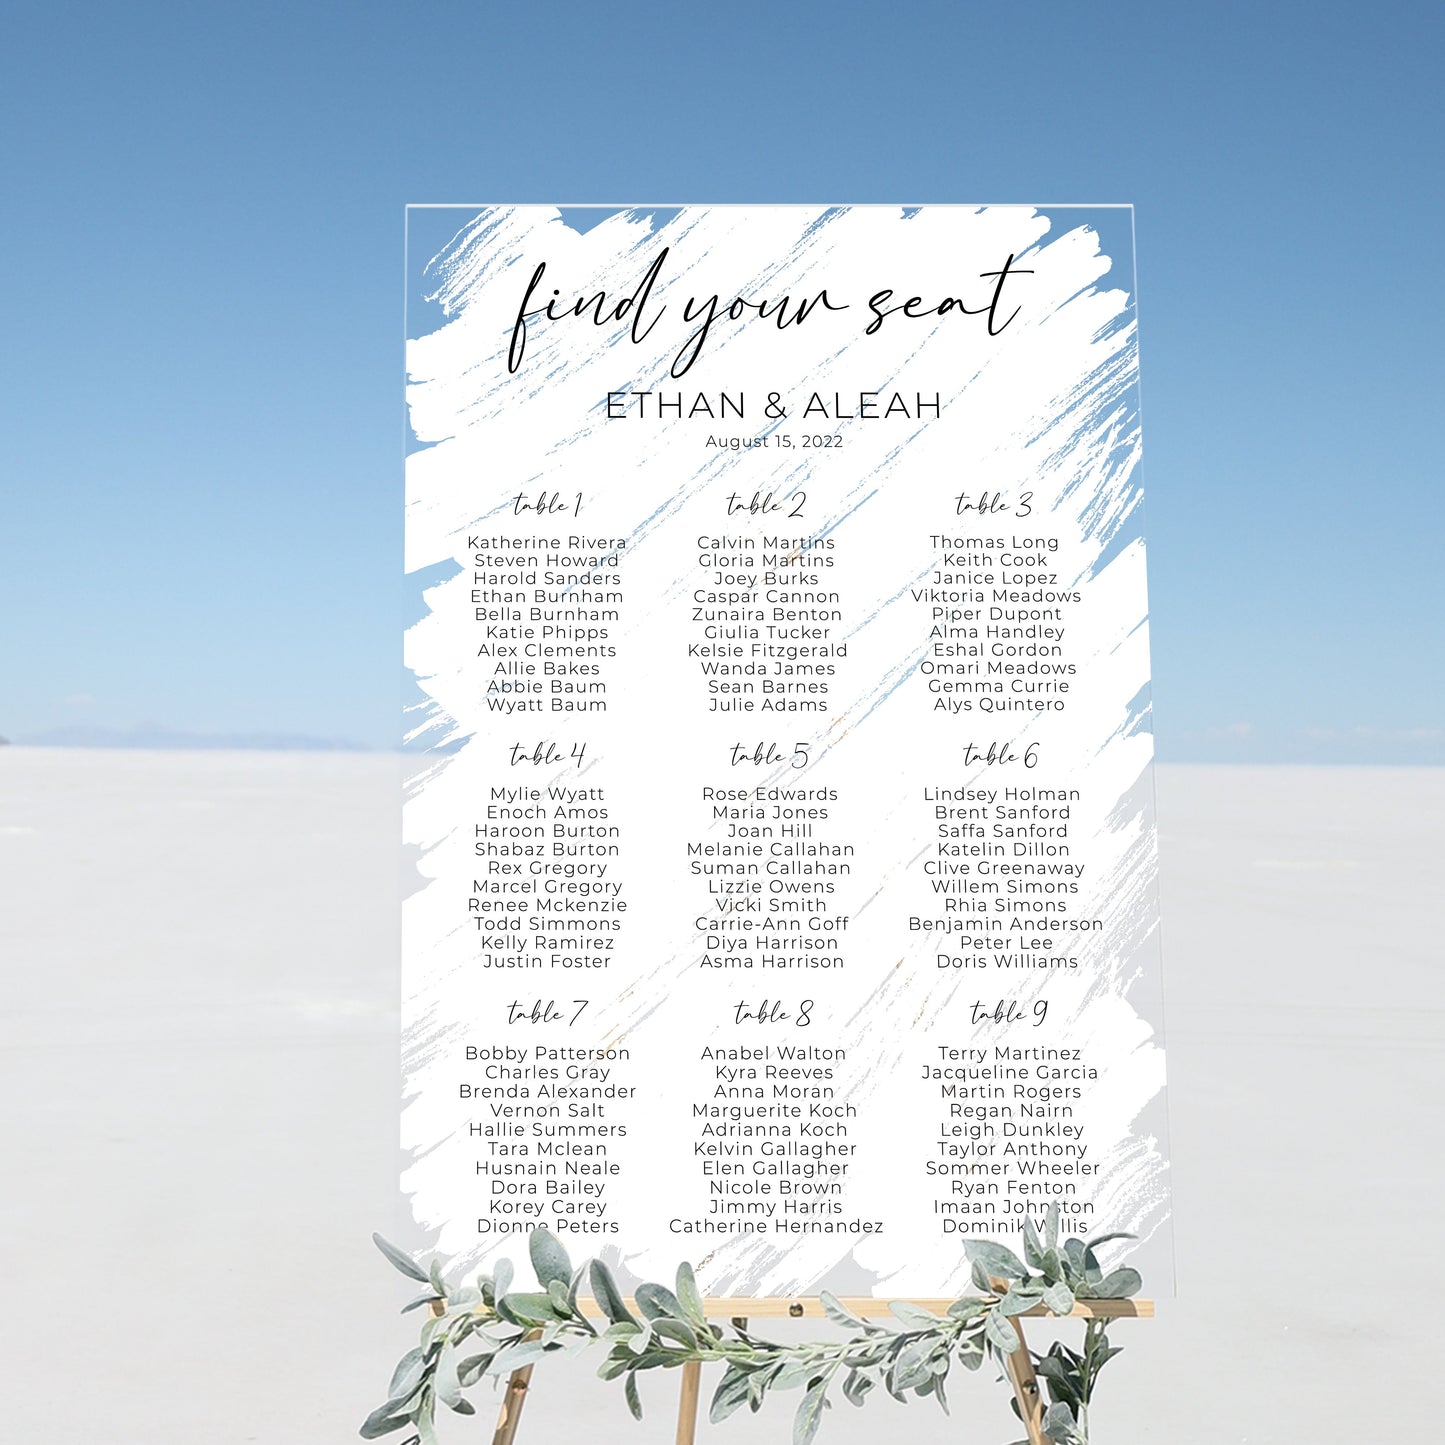 find your seat
ETHAN & ALEAH
August 15, 2022
table 1
Katherine Rivera
Steven Howard
Harold Sanders
Ethan Burnham
Bella Burnham
Katie Phipps
Alex Clements
Allie Bakes
Abbie Baum
Wyatt Baum
table 2
Calvin Martins
Gloria Martins
Joey Burks
Caspar Cannon
Zunaira Benton
Giulia Tucker
Kelsie Fitzgerald
Wanda James
Sean Barnes
Julie Adams
table 3
Thomas Long
Keith Cook
Janice Lopez
Viktoria Meadows
Piper Dupont
Alma Handley
Eshal Gordon
Omari Meadows
Gemma Currie
Alys Quintero
table 4
Mylie Wyatt
Enoch Amos
Haroon Burton
Shabaz Burton
Rex Gregory
Marcel Gregory
Renee Mckenzie
Todd Simmons
Kelly Ramirez
Justin Foster
table 5
Rose Edwards
Maria Jones
Joan Hill
Melanie Callahan
Suman Callahan
Lizzie Owens
Vicki Smith
Carrie-Ann Goff
Diya Harrison
Asma Harrison
table 6
Lindsey Holman
Brent Sanford
Saffa Sanford
Katelin Dillon
Clive Greenaway
Willem Simons
Rhia Simons
Benjamin Anderson
Peter Lee
Doris Williams
table 7
Bobby Patterson
Charles Gray
Brenda Alexander
Vernon Salt
Hallie Summers
Tara Mclean
Husnain Neale
Dora Bailey
Korey Carey
Dionne Peters
table 8
Anabel Walton
Kyra Reeves
Anna Moran
Marguerite Koch
Adrianna Koch
Kelvin Gallagher
Elen Gallagher
Nicole Brown
Jimmy Harris
Catherine Hernandez
table 9
Terry Martinez
Jacqueline Garcia
Martin Rogers
Regan Nairn
Leigh Dunkley
Taylor Anthony
Sommer Wheeler
Ryan Fenton
Imaan Johnston
Dominik Willis